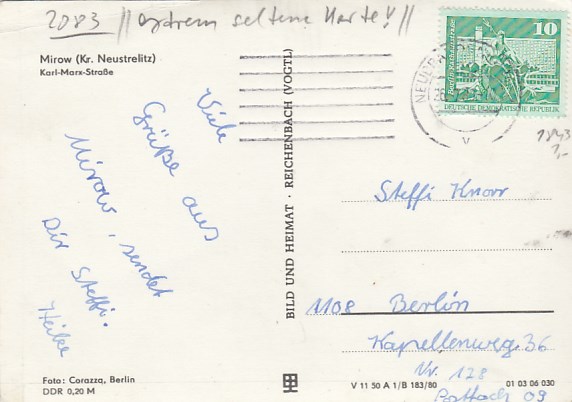 2083 || extrem seltene Karte! //
Mirow (Kr. Neustrelitz)
Karl-Marx-Straße
Viele
Grüße aus
Mirow, sendet
Dir Steffi.
Heike
Foto: Corazza, Berlin
DDR 0,20 M
BILD UND HEIMAT · REICHENBACH (VOGTL)
10
Berlin, Rathausstraße
DEUTSCHE DEMOKRATISCHE REPUBLIK
1,-
Steffi Knorr
1108 Berlin
Kapellenweg 36
Nr. 128
Postfach 09
V 11 50 A 1/B 183/80
01 03 06 030